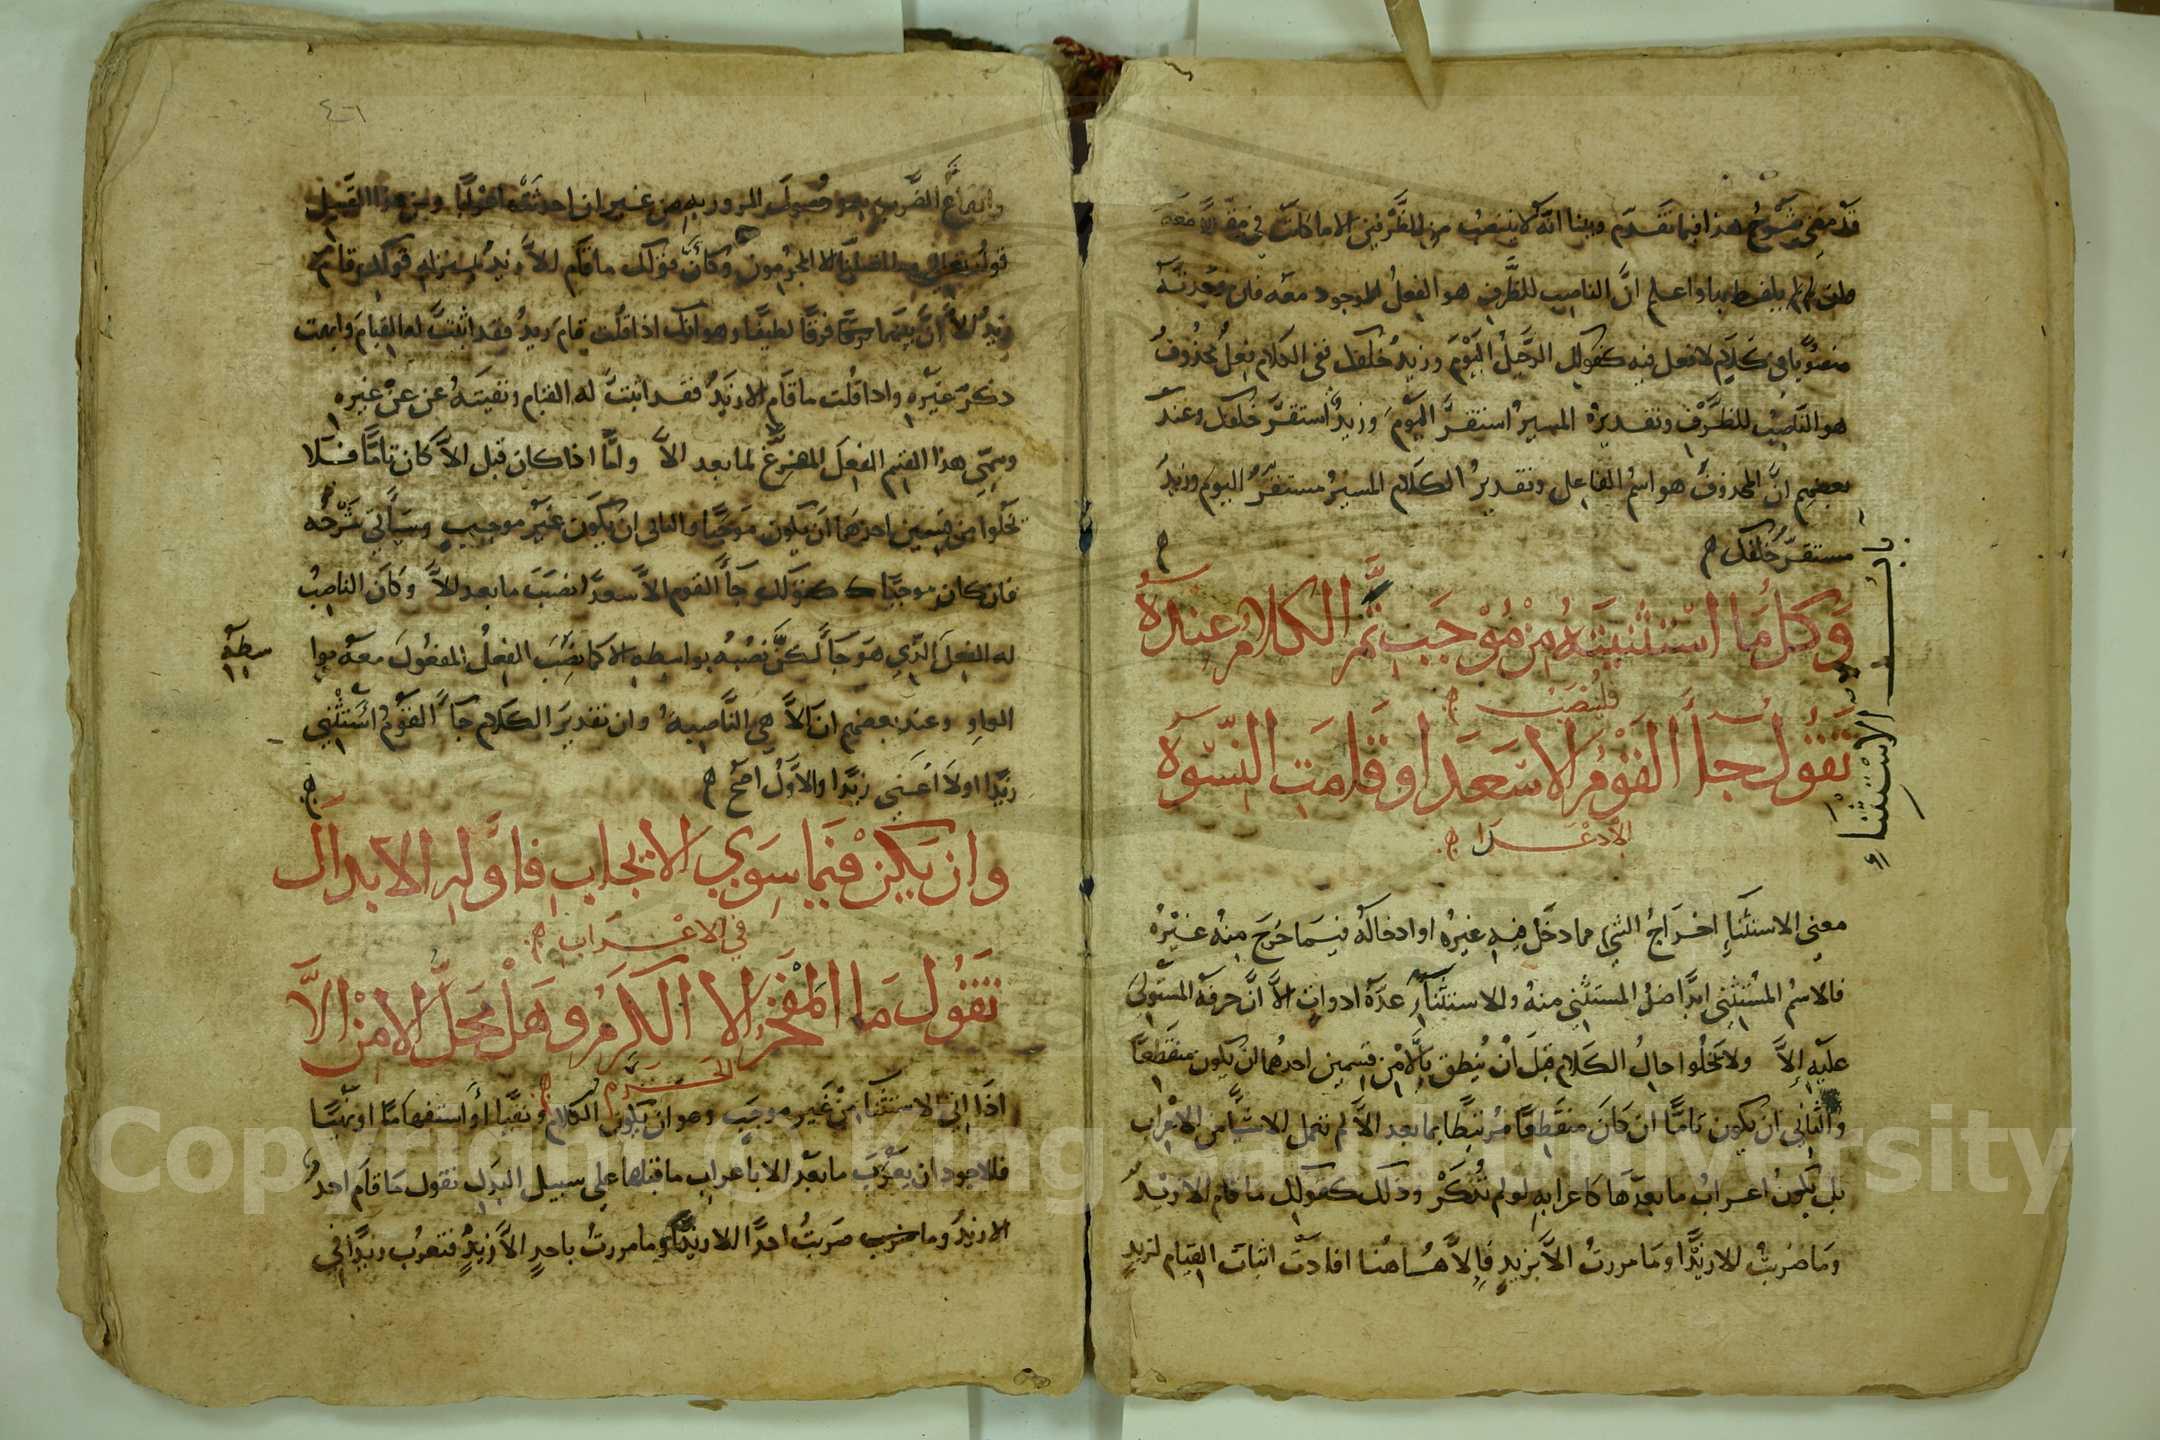 قد مضى شرح هذا فيما تقدم وبينا انه لا ينتصب من الظرفين الا ما كانت في مقدرة معه
وان لم يلفظ بها واعلم ان الناصب للظرف هو الفعل الموجود معه فان
في كلام لا فعل فيه كقولك الرحيل اليوم وزيد خلفك ففي الكلام فعل محذوف
هو الناصب للظرف وتقديره المسير استقر اليوم وزيد استقر خلفك وعند
بعضهم ان المحذوف هو اسم الفاعل وتقدير الكلام المسير مستقر اليوم وزيد
مستقر خلفك
باب الاستثناء
وكل ما استثنيته من موجب تم الكلام عنده
فلينصب
تقول جاء القوم الا سعدا وقامت النسوة
الا دعدا
معنى الاستثناء اخراج الشيء مما دخل فيه غيره او ادخاله فيما خرج منه غيره
فالاسم المستثنى ابدا ضد المستثنى منه وللاستثناء عدة ادوات الا ان حرفه المستولى
عليه إلا ولا يخلوا حال الكلام قبل أن ينطق بإلا من قسمين احدهما ان يكون منقطعا
والثاني ان يكون تاما ان كان منقطعا مرتبطا بما بعد الا لم تعمل الا شيا من الاعراب
بل يكون اعراب ما بعدها كاعرابه لو لم تذكر وذلك كقولك ما قام الا زيد
وما ضربت الا زيدا وما مررت الا بزيد فإلا هاهنا افادت اثبات القيام لزيد
٤٦
وايقاع الضرب به وحصول المرور به من غير ان احدثت اعرابا ومن هذا القبيل
قوله تعالى وما اضلنا الا المجرمون وكان قولك ما قام الا زيد بمنزلة قولك قام
زيد الا ان بينهما فرقا لطيفا وهو انك اذا قلت قام زيد فقد اثبت له القيام وابهمت
ذكر غيره واذا قلت ما قام الا زيد فقد اثبت له القيام ونفيته عن عن غيره
وسمي هذا القسم الفعل المفرغ لما بعد الا ولما اذا كان قبل الا كان تاما فلا
تخلوا من قسمين احدهما ان يكون موجبا والثاني ان يكون غير موجب وسيأتي شرحه
فان كان موجبا كقولك جاء القوم الا سعدا نصبت ما بعد الا وكان الناصب
له الفعل الذي هو جاء لكن نصبه بواسطة الا كما نصب الفعل المفعول معه بوا
سطة
الواو وعند بعضهم ان الا هي الناصبة وان تقدير الكلام جاء القوم استثنى
زيدا او لا اعني زيدا والاول اصح
وان يكن فيما سوى الايجاب فاوله الابدال
في الاعراب
تقول ما المفخر الا الكرم وهل محل الامن الا
الحرم
اذا اتى الاستثناء من غير موجب وهو ان يكون الكلام نفيا أو استفهاما او نهيا
فالاجود ان يعرب ما بعد الا باعراب ما قبلها على سبيل البدل تقول ما قام احد
الا زيد وما ضربت احدا الا زيدا وما مررت باحد الا زيد فتعرب زيدا في
Copyright © King Saud University